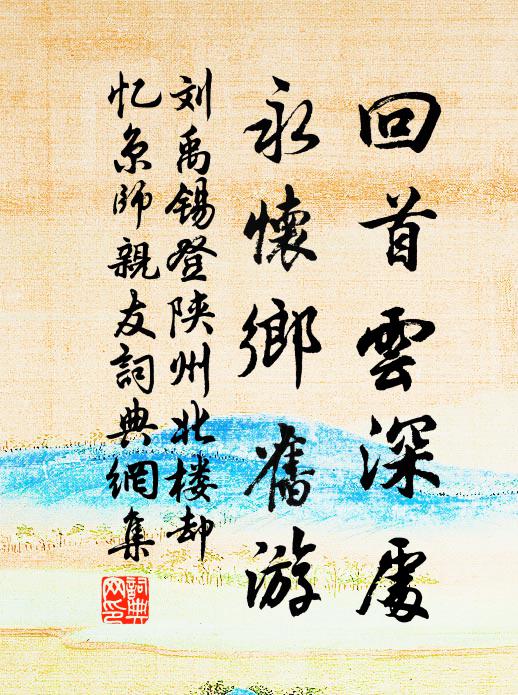 回首雲深處
永懷鄉舊游
刘禹锡登陕州北楼却
忆京師親友詞典網集
詞典
网印